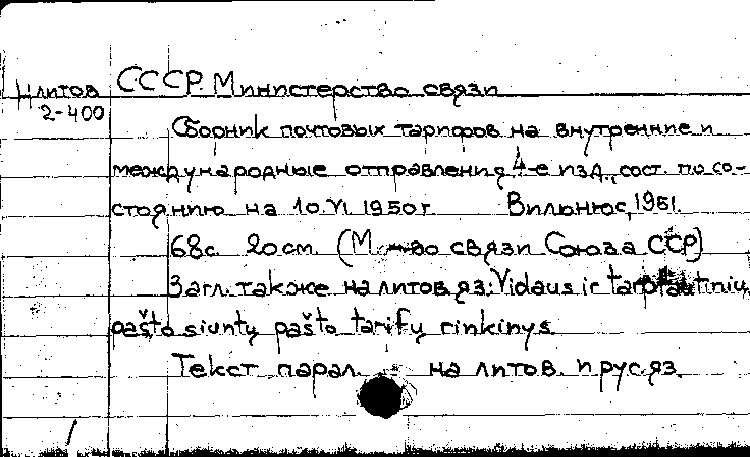 Нлитов СССР. Министерство связи
2-400
Сборник почтовых тарифов на внутренние и
международные отправления, 4-е изд., сост. по со-
стоянию на 10.VI 1950г. Вильнюс, 1951.
68с. 20см. (М-во связи Союза ССР)
Загл. также на литов. яз.: Vidaus ir tarptautinių
pašto siuntų pašto tarifų rinkinys.
Текст парал. на литов. и рус. яз.